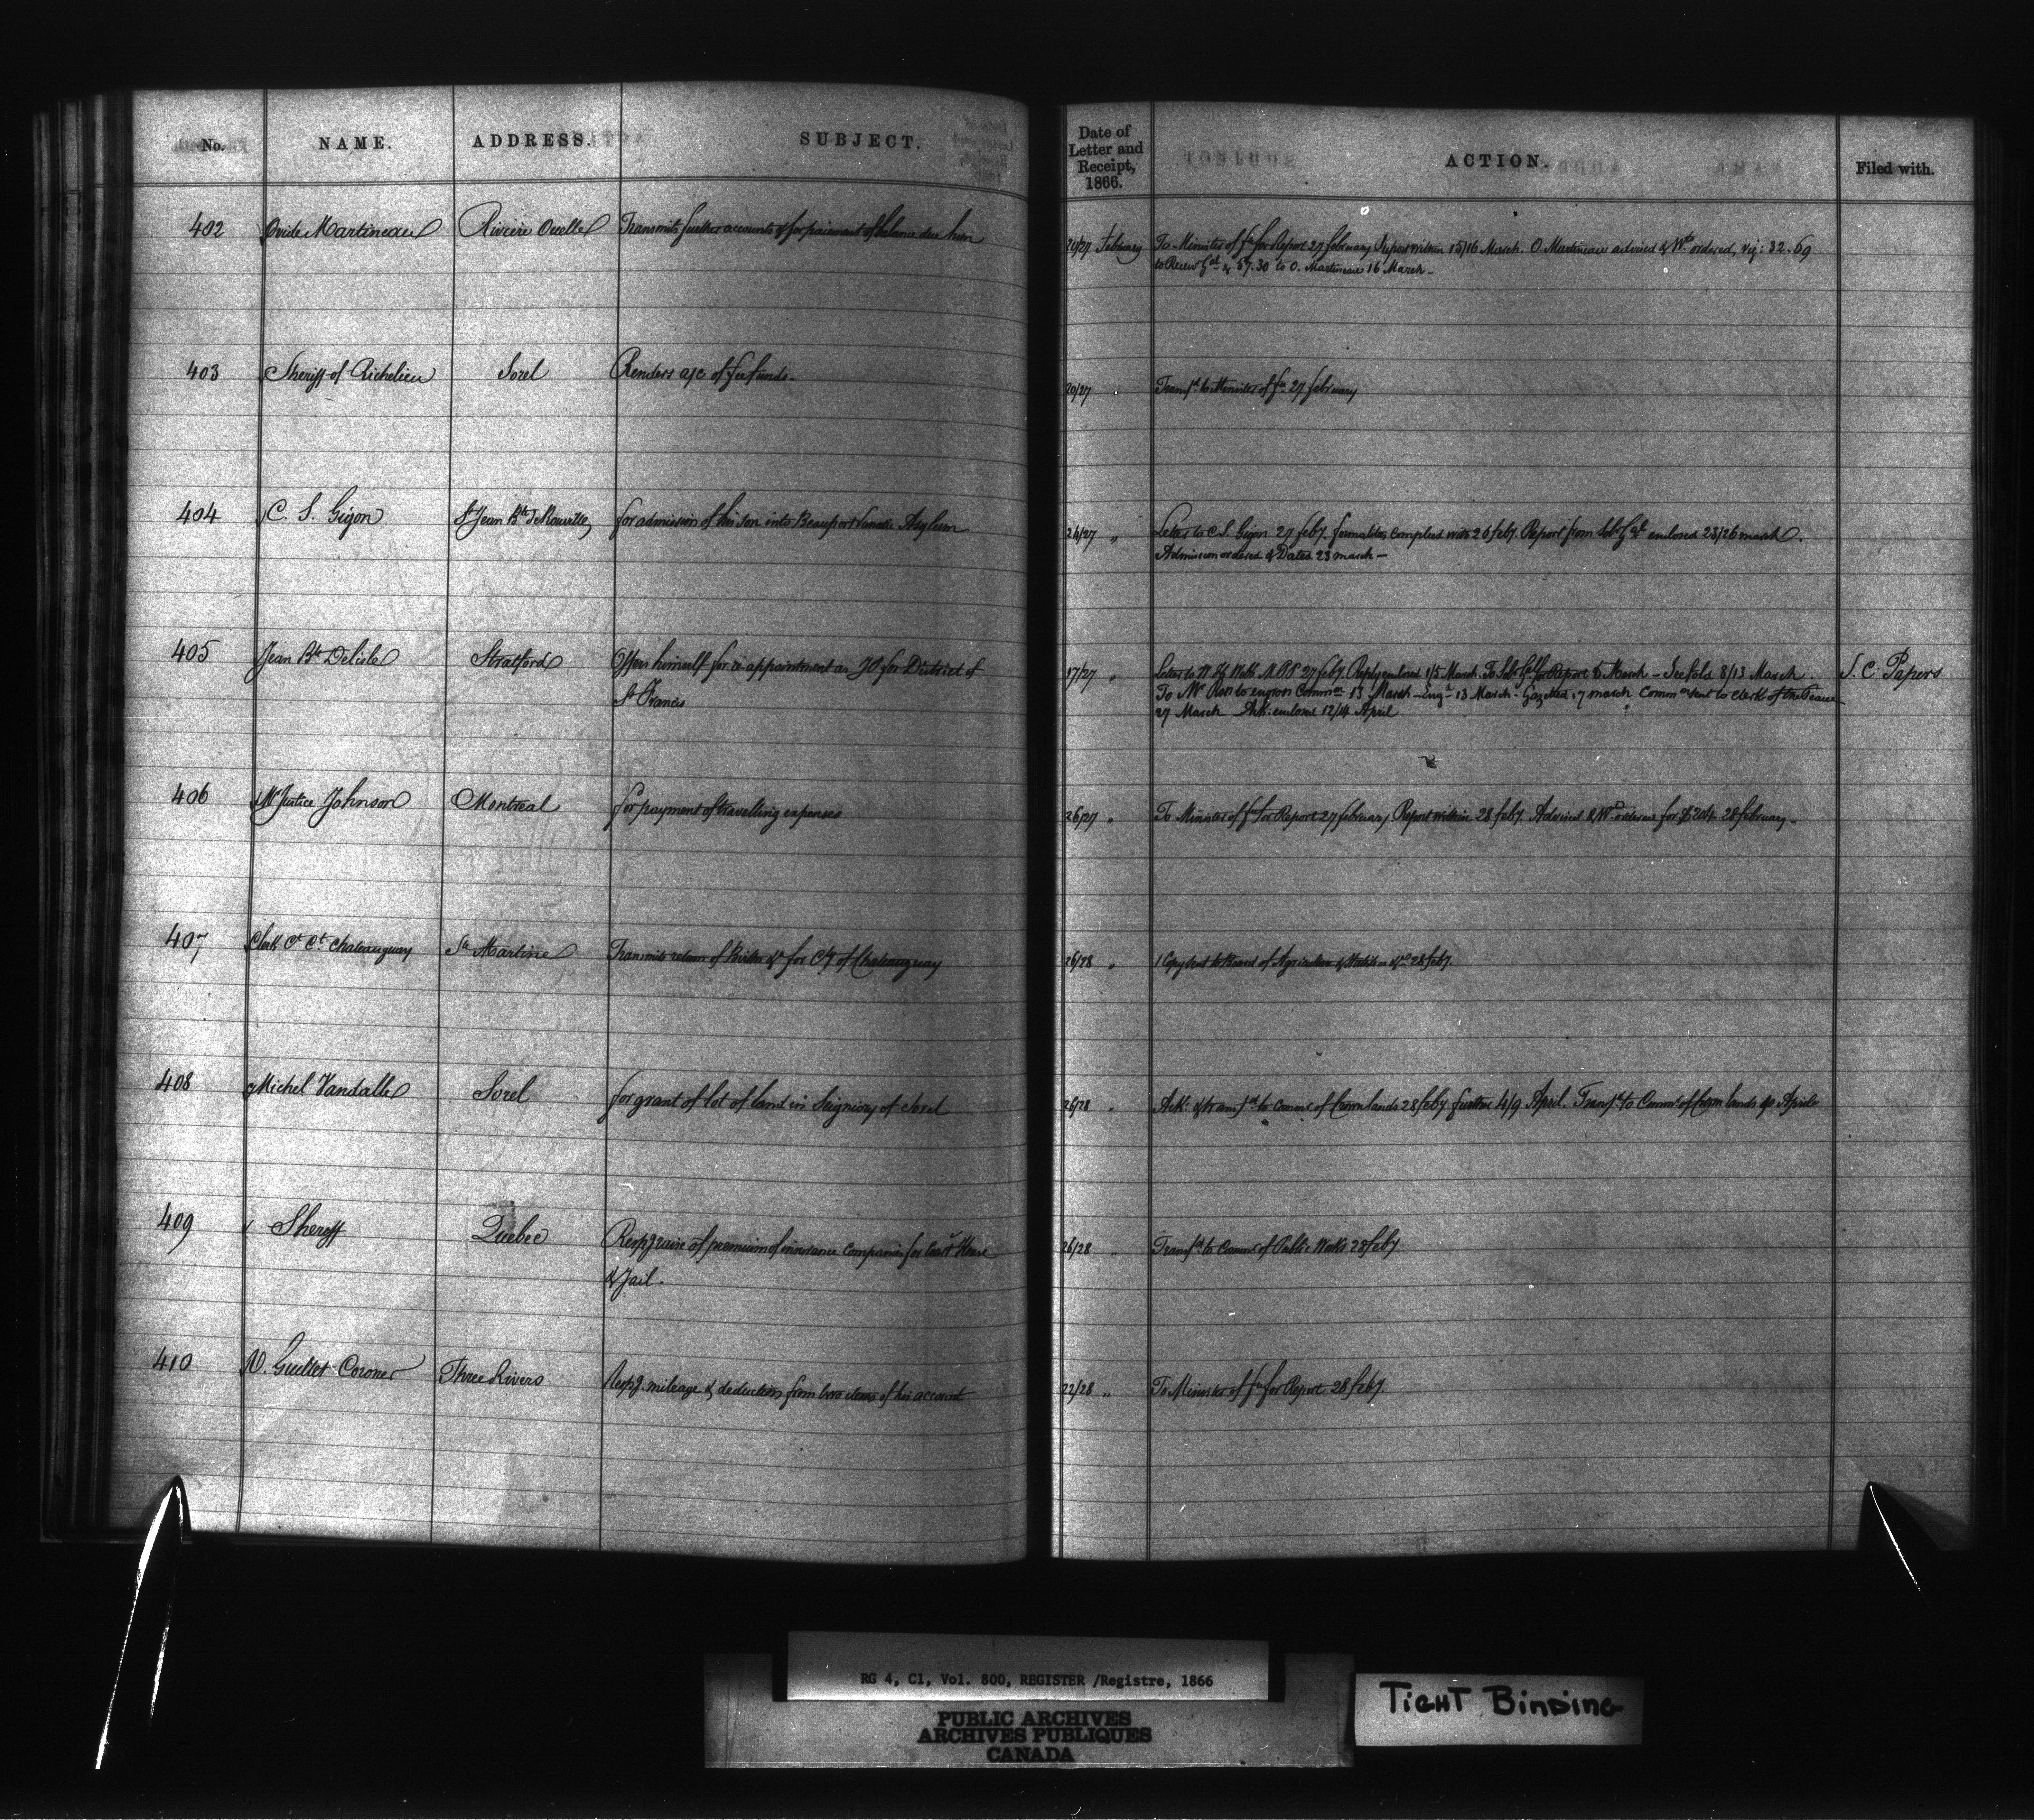 No. NAME. ADDRESS. SUBJECT. Date of Letter and Receipt, 1866. ACTION. Filed with.
402 Ovide Martineau Rivière Ouelle Transmits further accounts & for paiement of balance due him 24/27 February To Minister of fce for Report 27 february Report within 15/16 March. O. Martineau advised & Wts ordered, viz: 32.69
to Recevr Gal & 57.30 to O. Martineau 16 March –
403 Sheriff of Richelieu Sorel Renders a/c of fee funds. 20/27 " Transfd to Minister of fce 27 february
404 C. S. Gigon St Jean Bte de Rouville for admission of his son into Beauport Lunatic Asylum 24/27 " Letter to C. S. Gigon 27 feby. formalities complied with 26 feby. Report from Solr Gal enclosed 23/26 march.
Admission ordered & Dated 23 march –
405 Jean Bte Delisle Stratford Offers himself for re-appointment as JP for District of 17/27 " Letter to W. H. Webb M.P.P. 27 feby. Reply enclosed 1/5 March. To Solr Gal for Report 5 March – See fold 8/13 March. S. C. Papers
St Francis To Mr to engross Common 13 March – Engd 13 March. Gazetted 17 march Common sent to Clerk of the Peace
27 March Ack: enclosed 12/14 April
406 Mr Justice Johnson Montreal for payment of travelling expenses 26/27 " To Minister of fce for Report 27 february Report within 28 feby. Advised & Wt ordered for $204 28 february –
407 Clerk Ct Ct Chateauguay Ste Martine Transmits return of &c for Cty of Chateauguay 26/28 " 1 Copy sent to Board of Agriculture & Statistics &c 28 feby.
408 Michel Vandalle Sorel for grant of lot of land in Seigniory of Sorel 26/28 " Ack: & transfd to Commr of Crown lands 28 feby further 4/9 April. Transfd to Commr of Crown lands 9 April
409 Sheriff Quebec Respg raise of premium of insurance companies for Court House 26/28 " Transfd to Commr of Public Works 28 feby
& Jail.
410 V. Guillet Coroner Three Rivers Respg. mileage & deduction from two items of his account 22/28 " To Minister of fce for Report 28 feby.
RG 4, C1, Vol. 800, REGISTER /Registre, 1866
PUBLIC ARCHIVES
ARCHIVES PUBLIQUES
CANADA
TIGHT BINDING